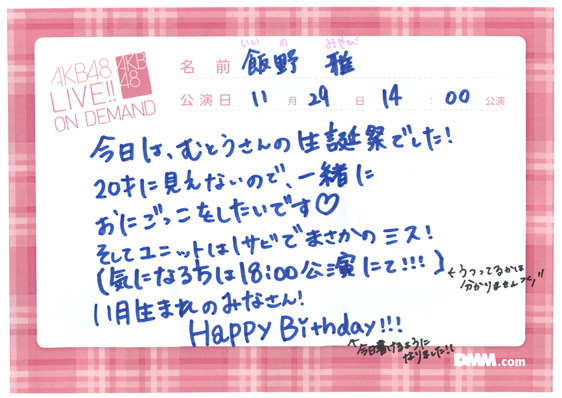 AKB48
LIVE!!
ON DEMAND
AKB
48
いい の みやび
名 前 飯野 雅
公演日 11 月 29 日 14 : 00 公演
今日は、むとうさんの生誕祭でした!
20才に見えないので、一緒に
おにごっこをしたいです♡
そしてユニットは1サビでまさかのミス!
(気になる方は18:00公演にて!!!)
←うつってるかは
分かりません
11月生まれのみなさん!
Happy Birthday!!!
↖今日書けるように
なりました!!
DMM.com